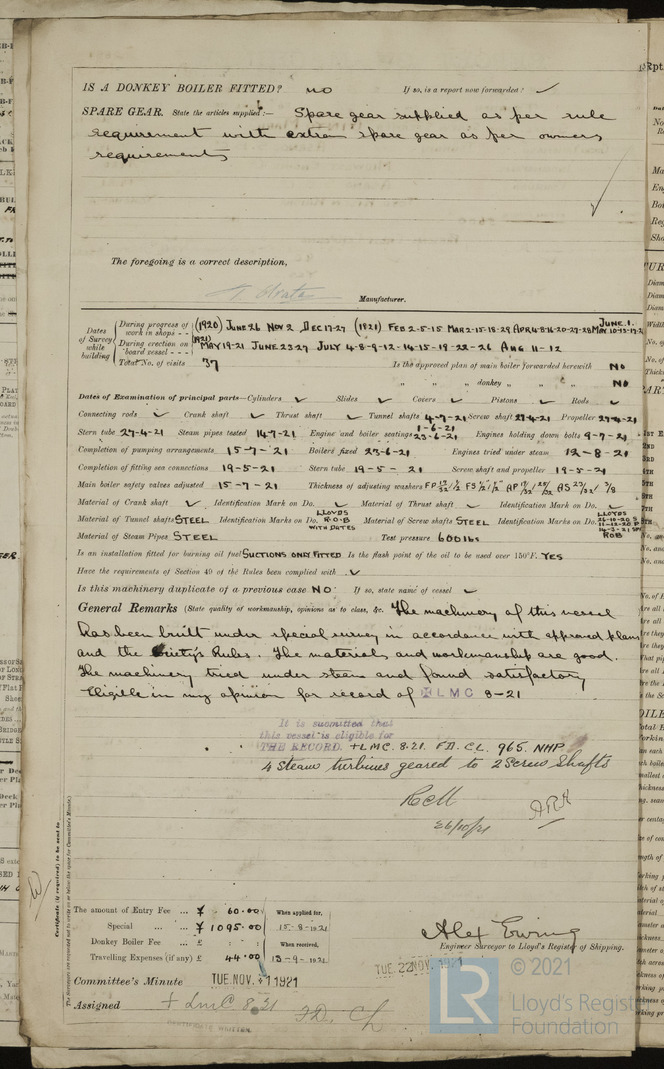 IS A DONKEY BOILER FITTED? no If so, is a report now forwarded? ✓
SPARE GEAR. State the articles supplied:— Spare gear supplied as per rule
requirement with extra spare gear as per owners
requirements
The foregoing is a correct description,
Manufacturer.
Dates of Survey while building
During progress of work in shops - - (1920) JUNE 26 NOV 2 DEC 17-27 (1921) FEB 2-5-15 MAR 2-15-18-29 APR 4-8-16-20-27-28 MAY 10-13-17-2 JUNE. 1.
During erection on board vessel - - - (1921) MAY 19-21 JUNE 23-27 JULY 4-8-9-12-14-15-19-22-26 AUG 11-12
Total No. of visits 37 Is the approved plan of main boiler forwarded herewith NO
" " " donkey " " " NO
Dates of Examination of principal parts—Cylinders ✓ Slides ✓ Covers ✓ Pistons ✓ Rods ✓
Connecting rods ✓ Crank shaft ✓ Thrust shaft ✓ Tunnel shafts 4-7-21 Screw shaft 27-4-21 Propeller 27-4-21
Stern tube 27-4-21 Steam pipes tested 14-7-21 Engine and boiler seatings 1-6-21 23-6-21 Engines holding down bolts 9-7-21
Completion of pumping arrangements 15-7-21 Boilers fixed 23-6-21 Engines tried under steam 12-8-21
Completion of fitting sea connections 19-5-21 Stern tube 19-5-21 Screw shaft and propeller 19-5-21
Main boiler safety valves adjusted 15-7-21 Thickness of adjusting washers
Material of Crank shaft ✓ Identification Mark on Do. ✓ Material of Thrust shaft ✓ Identification Mark on Do. ✓
Material of Tunnel shafts STEEL Identification Marks on Do. LLOYDS R.O.B WITH DATES Material of Screw shafts STEEL Identification Marks on Do. LLOYDS ROB
Material of Steam Pipes STEEL Test pressure 600 lbs
Is an installation fitted for burning oil fuel SUCTIONS ONLY FITTED Is the flash point of the oil to be used over 150°F. YES
Have the requirements of Section 49 of the Rules been complied with ✓
Is this machinery duplicate of a previous case NO If so, state name of vessel ✓
General Remarks (State quality of workmanship, opinions as to class, &c. The machinery of this vessel
has been built under special survey in accordance with approved plans
and the Society's Rules. The materials and workmanship are good.
The machinery tried under steam and found satisfactory
Eligible in my opinion for record of ✠ L M C 8-21
It is submitted that
this vessel is eligible for
THE RECORD. + L.M.C. 8.21. F.D. C.L. 965. NHP
4 Steam turbines geared to 2 Screw Shafts
26/10/21
Certificate (if required) to be sent to
The amount of Entry Fee ... ¥ 60.00 When applied for,
Special ... ¥ 1095.00 15-8-1921
Donkey Boiler Fee ... £ When received,
Travelling Expenses (if any) £ 44.00 13-9-1921
Alex Ewing
Engineer Surveyor to Lloyd's Register of Shipping.
Committee's Minute TUE. NOV. 1 1921
TUE. 22 NOV. 1921
Assigned + LMC 8.21 F.D. CL
CERTIFICATE WRITTEN
© 2021
LR
Lloyd's Regist
Foundation